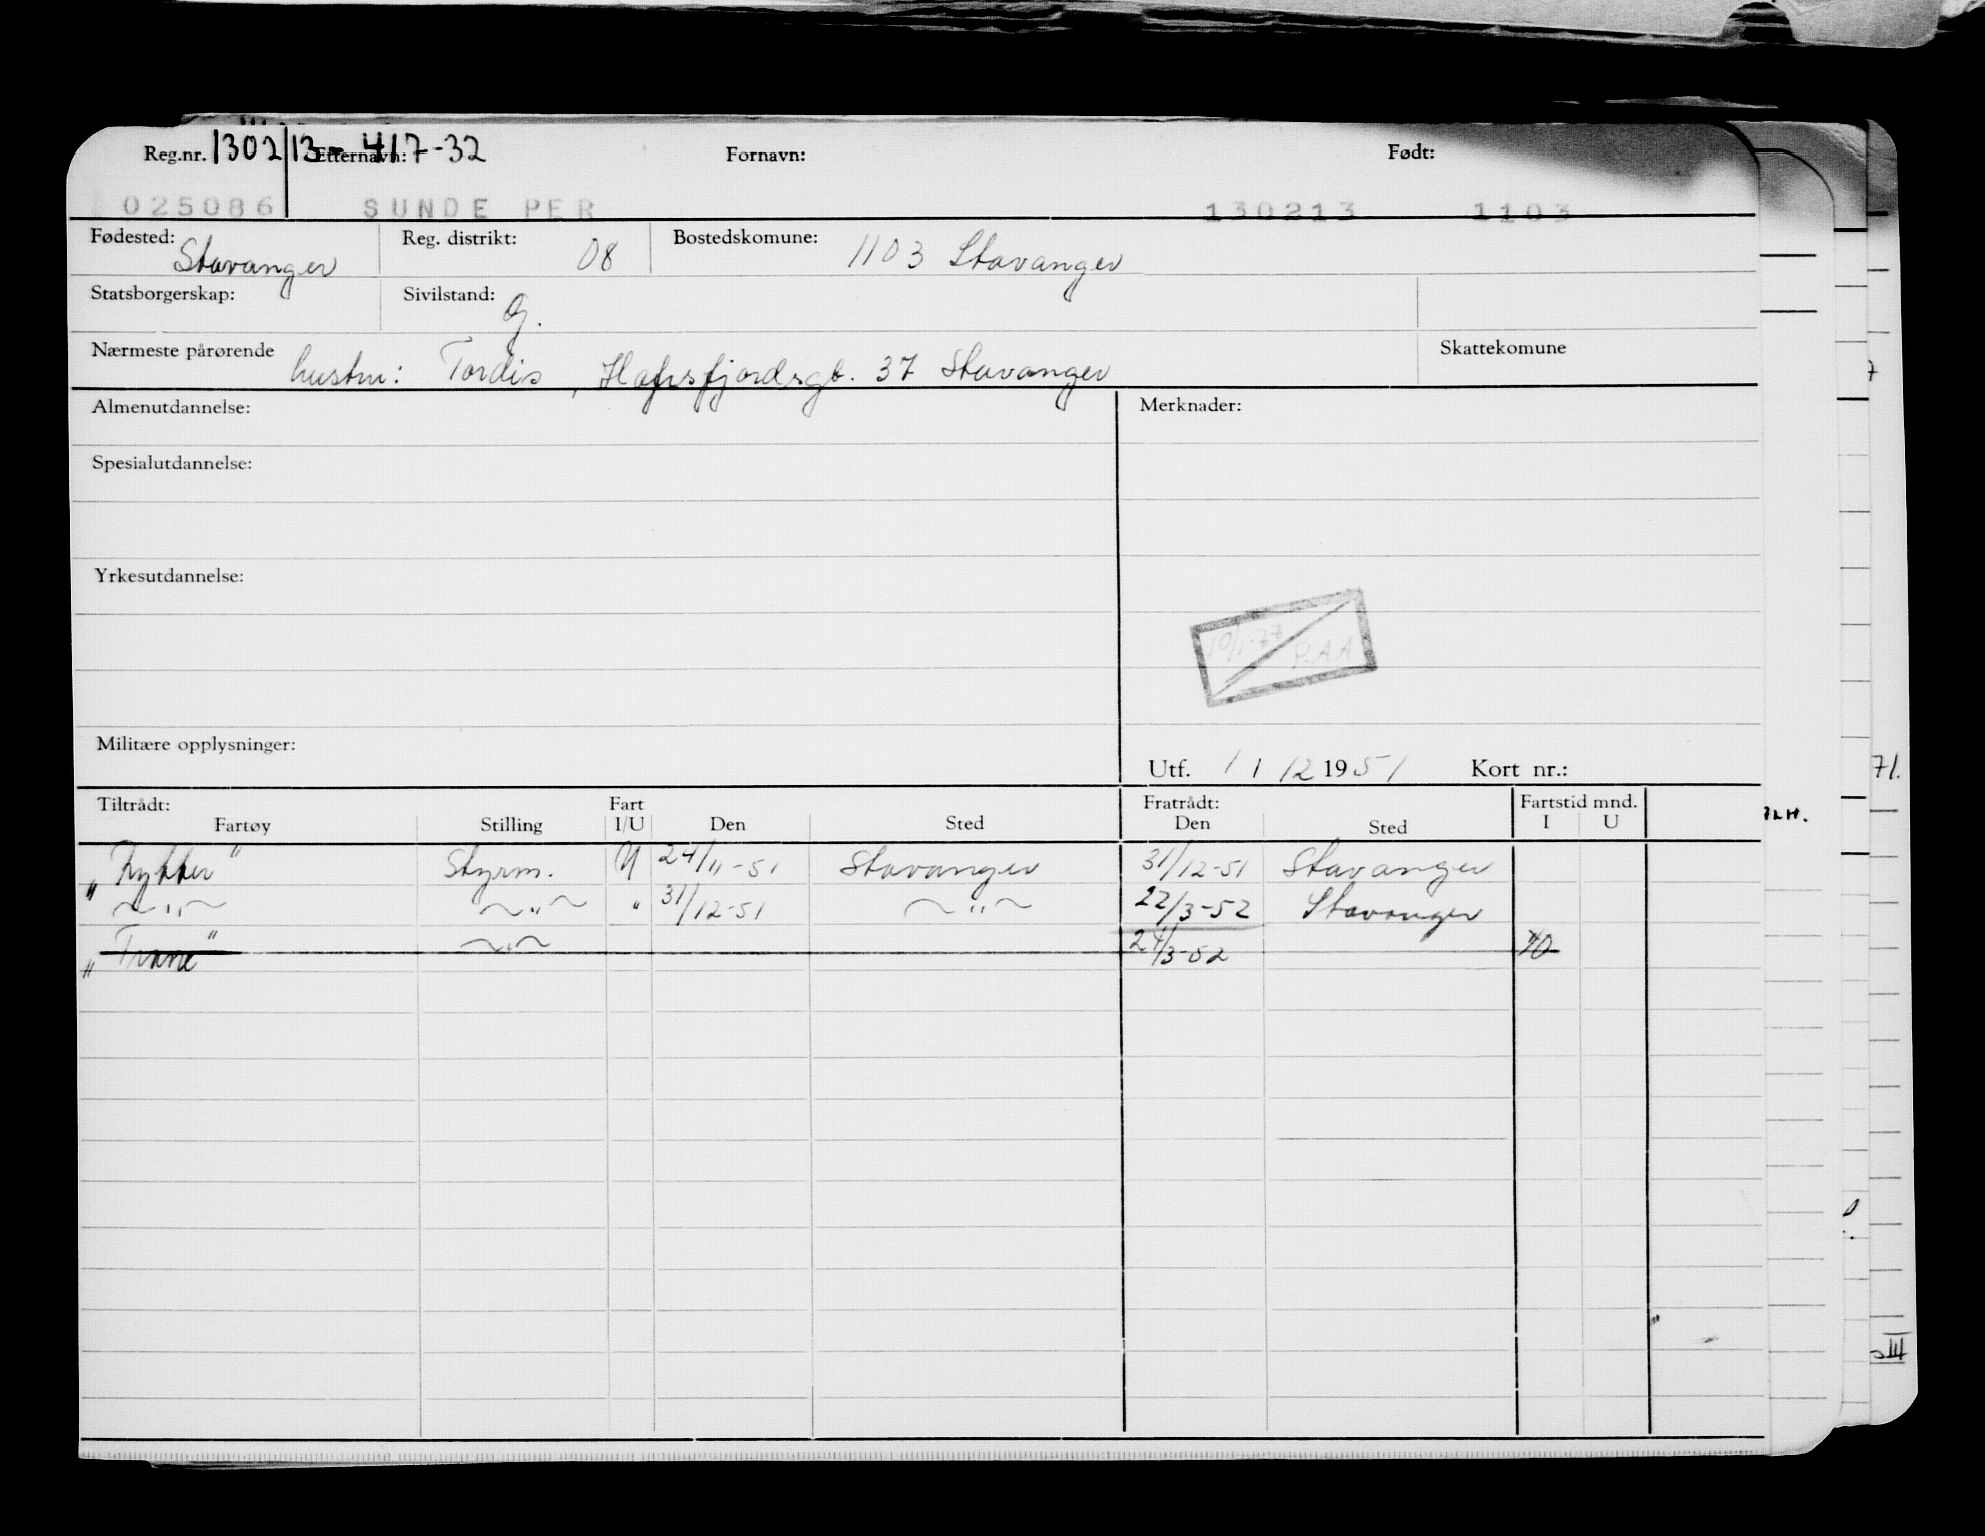 Reg.nr. 1302/13-417-32 Etternavn: Fornavn: Født:
025086 SUNDE PER 130213 1103
Fødested: Stavanger Reg. distrikt: 08 Bostedskomune: 1103 Stavanger
Statsborgerskap: Sivilstand: G.
Nærmeste pårørende hustru: Tordis, Hafrsfjordsgt. 37 Stavanger Skattekomune
Almenutdannelse: Merknader:
Spesialutdannelse:
Yrkesutdannelse:
10/1-77 P.A.A
Militære opplysninger:
Utf. 1 1 12 1951 Kort nr.:
Tiltrådt: Fart Fratrådt: Fartstid mnd.
Fartøy Stilling I/U Den Sted Den Sted I U
„Rykker" Styrm. U 24/11-51 Stavanger 31/12-51 Stavanger
~"~ ~"~ " 31/12-51 ~"~ 22/3-52 Stavanger
„Trane" ~"~ 24/3-52
71.